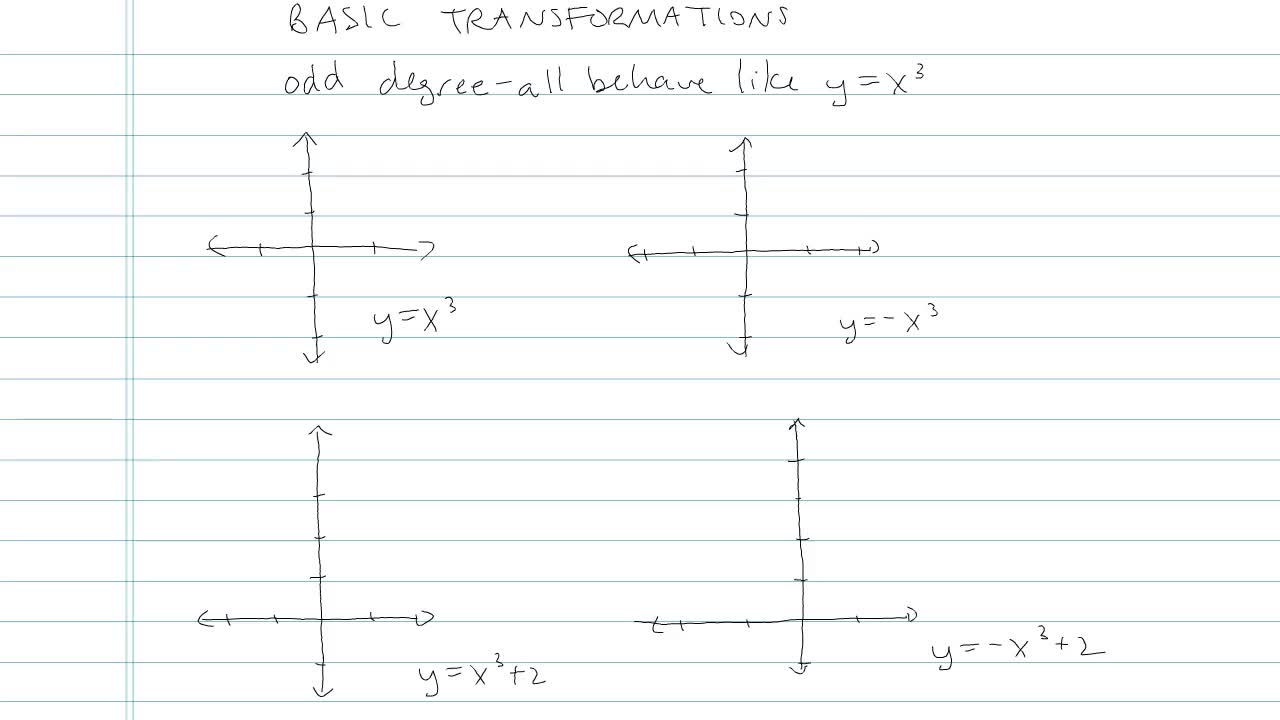 BASIC TRANSFORMATIONS
odd degree-all behave like y=x³
y=x³
y=-x³
y=x³+2
y=-x³+2